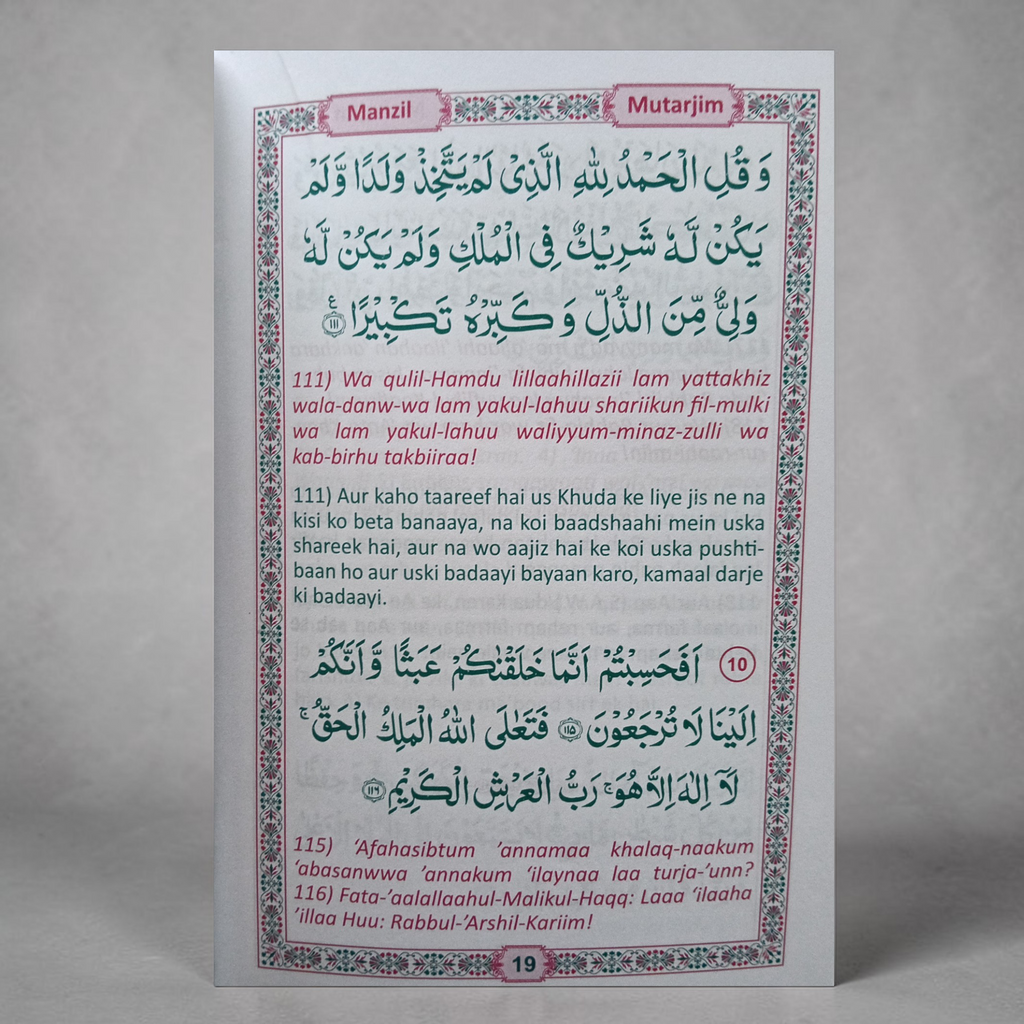 Manzil
Mutarjim
وَ قُلِ الْحَمْدُ لِلّٰهِ الَّذِىْ لَمْ يَتَّخِذْ وَلَدًا وَّلَمْ
يَكُنْ لَّهٗ شَرِيْكٌ فِى الْمُلْكِ وَلَمْ يَكُنْ لَّهٗ
وَلِىٌّ مِّنَ الذُّلِّ وَ كَبِّرْهُ تَكْبِيْرًا ۝١١١ ع
111) Wa qulil-Hamdu lillaahillazii lam yattakhiz
wala-danw-wa lam yakul-lahuu shariikun fil-mulki
wa lam yakul-lahuu waliyyum-minaz-zulli wa
kab-birhu takbiiraa!
111) Aur kaho taareef hai us Khuda ke liye jis ne na
kisi ko beta banaaya, na koi baadshaahi mein uska
shareek hai, aur na wo aajiz hai ke koi uska pushti-
baan ho aur uski badaayi bayaan karo, kamaal darje
ki badaayi.
10 اَفَحَسِبْتُمْ اَنَّمَا خَلَقْنٰكُمْ عَبَثًا وَّ اَنَّكُمْ
اِلَيْنَا لَا تُرْجَعُوْنَ ۝١١٥ فَتَعٰلَى اللّٰهُ الْمَلِكُ الْحَقُّ ۚ
لَآ اِلٰهَ اِلَّا هُوَ ۚ رَبُّ الْعَرْشِ الْكَرِيْمِ ۝١١٦
115) ‘Afahasibtum ’annamaa khalaq-naakum
‘abasanwwa ’annakum ‘ilaynaa laa turja-‘unn?
116) Fata-’aalallaahul-Malikul-Haqq: Laaa ‘ilaaha
’illaa Huu: Rabbul-’Arshil-Kariim!
19